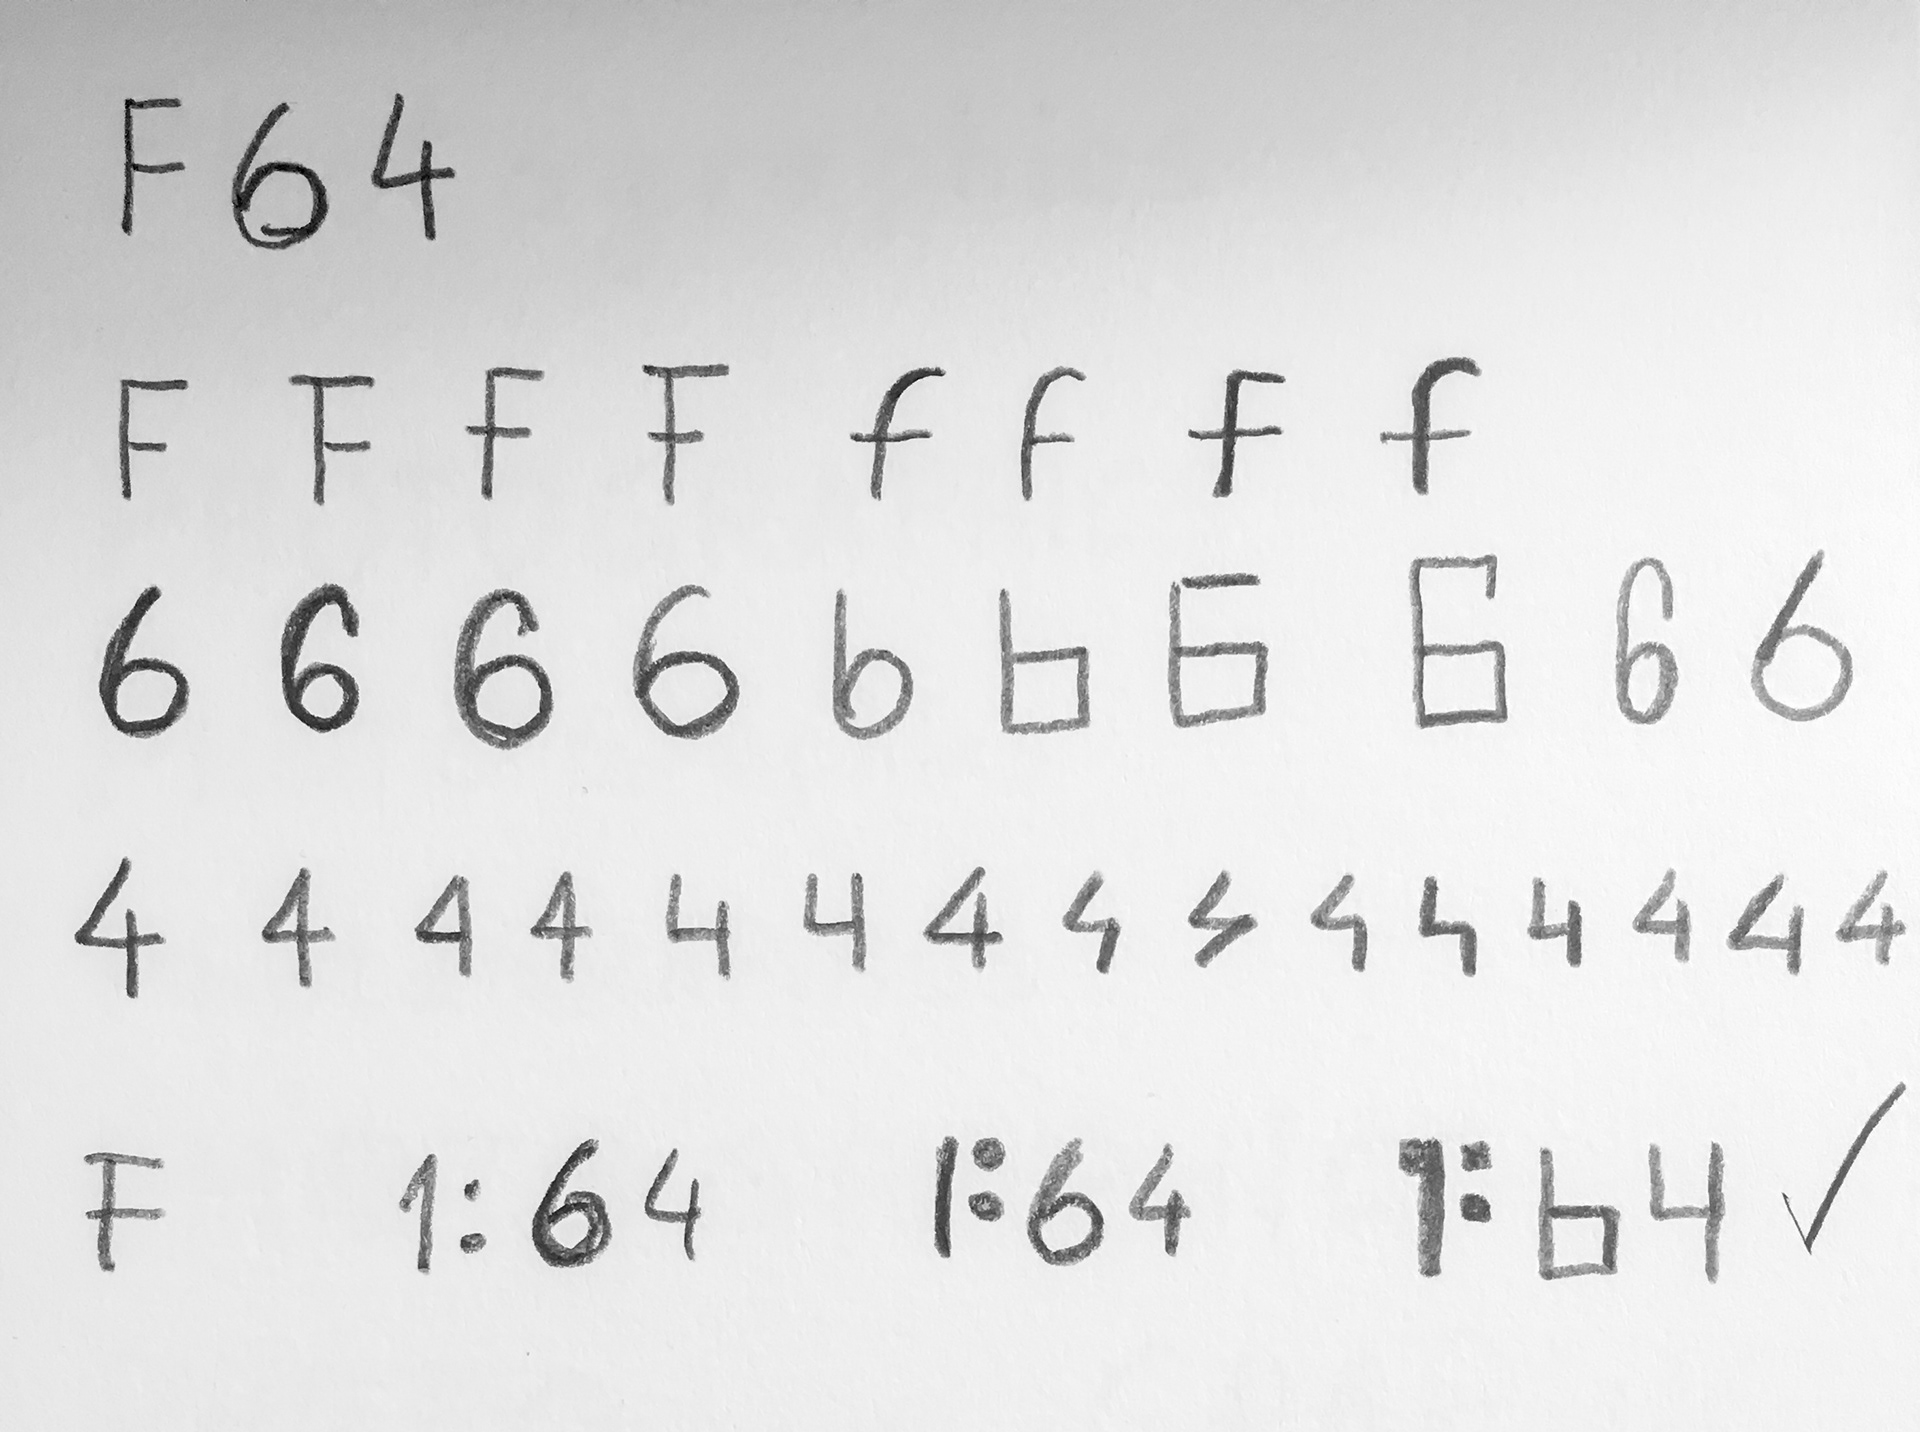 F 6 4
F F F F f f F f
6 6 6 6 6 6 6 6 6 6
4 4 4 4 4 4 4 4 4 4 4 4 4 4 4
F 1:64 1:64 1:64 ✓